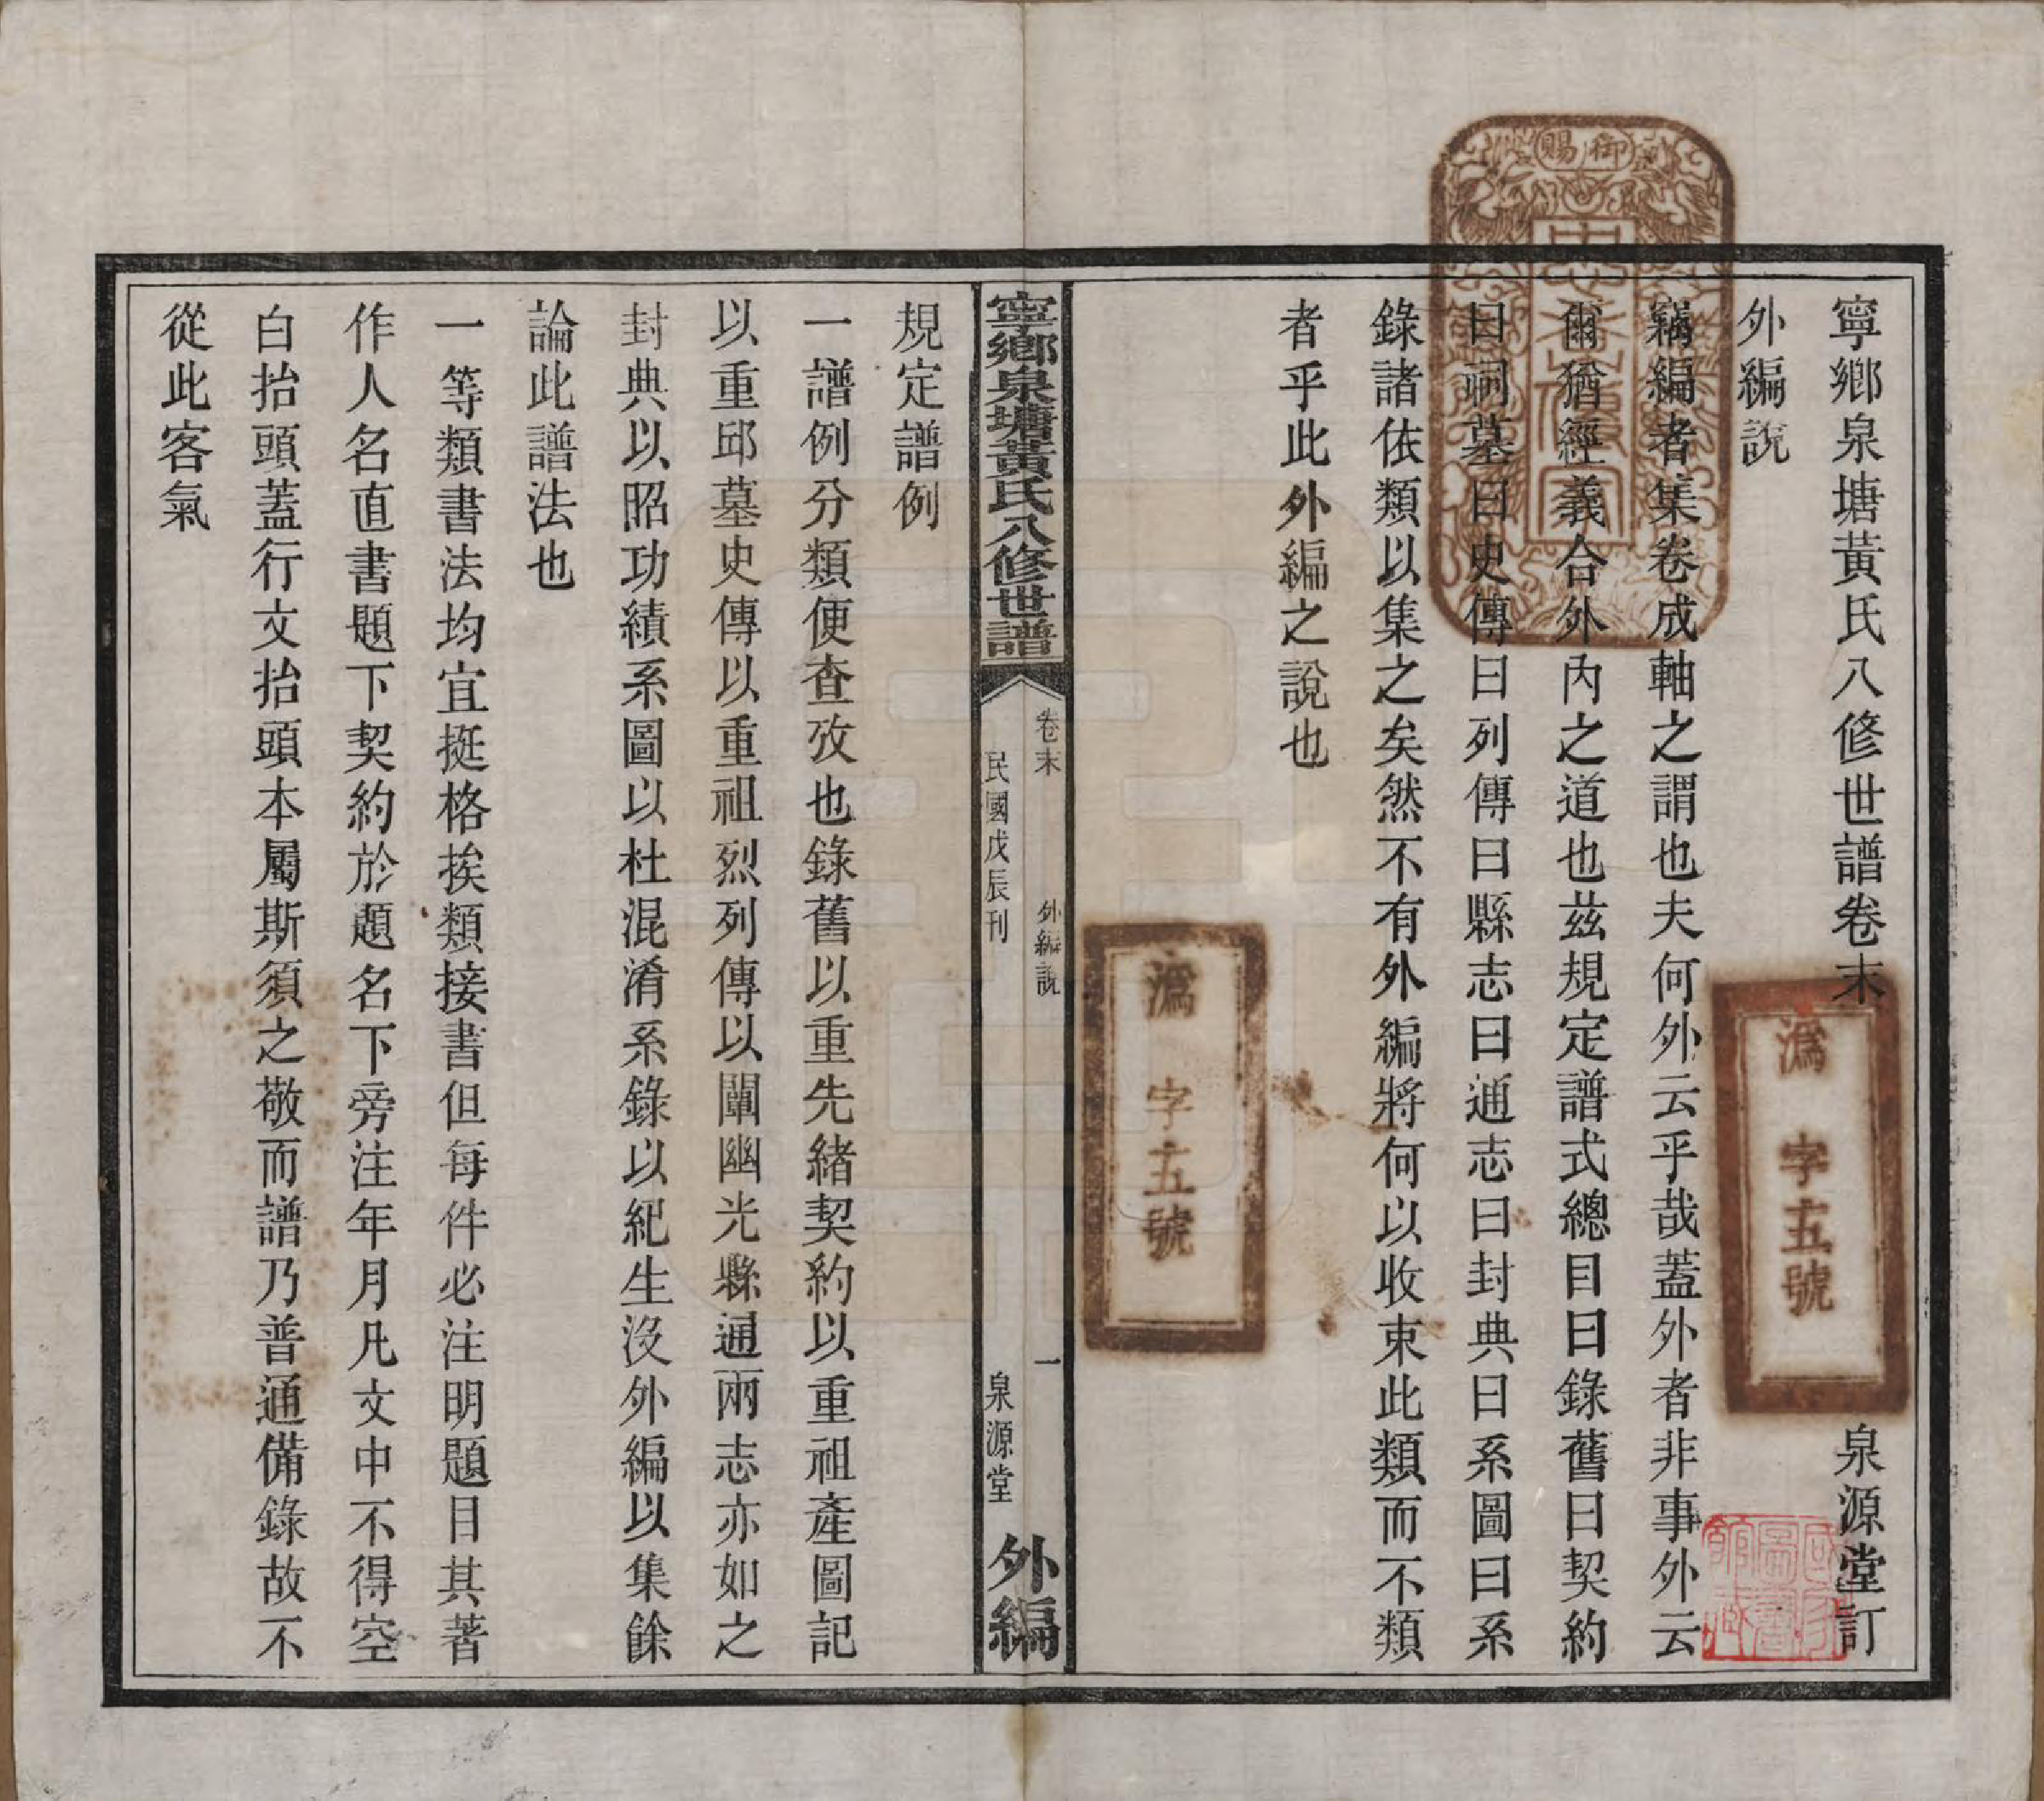 寧鄉泉塘黃氏八修世譜卷末　泉源堂訂
外編說
竊編者集卷成軸之謂也夫何外云乎哉蓋外者非事外云
爾猶經義合外內之道也茲規定譜式總目曰錄舊曰契約
曰祠墓曰史傳曰列傳曰縣志曰通志曰封典曰系圖曰系
錄諸依類以集之矣然不有外編將何以收束此類而不類
者乎此外編之說也
御賜
溈字五號
溈字五號
寧鄉泉塘黃氏八修世譜
卷末　外編說　一
民國戊辰刊　泉源堂
外編
規定譜例
一譜例分類便查攷也錄舊以重先緒契約以重祖產圖記
以重邱墓史傳以重祖烈列傳以闡幽光縣通兩志亦如之
封典以昭功績系圖以杜混淆系錄以紀生沒外編以集餘
論此譜法也
一等類書法均宜挺格挨類接書但每件必注明題目其著
作人名直書題下契約於題名下旁注年月凡文中不得空
白抬頭蓋行文抬頭本屬斯須之敬而譜乃普通備錄故不
從此客氣